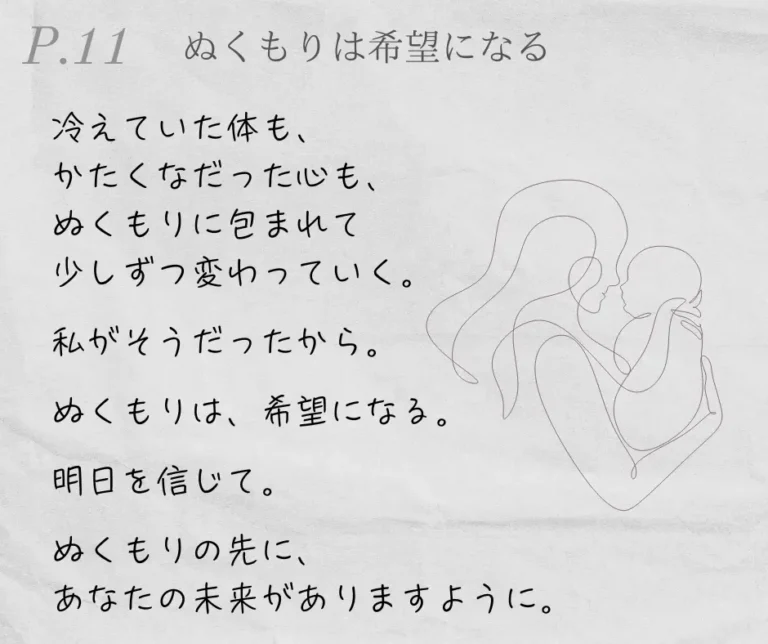 P.11 ぬくもりは希望になる
冷えていた体も、
かたくなだった心も、
ぬくもりに包まれて
少しずつ変わっていく。
私がそうだったから。
ぬくもりは、希望になる。
明日を信じて。
ぬくもりの先に、
あなたの未来がありますように。